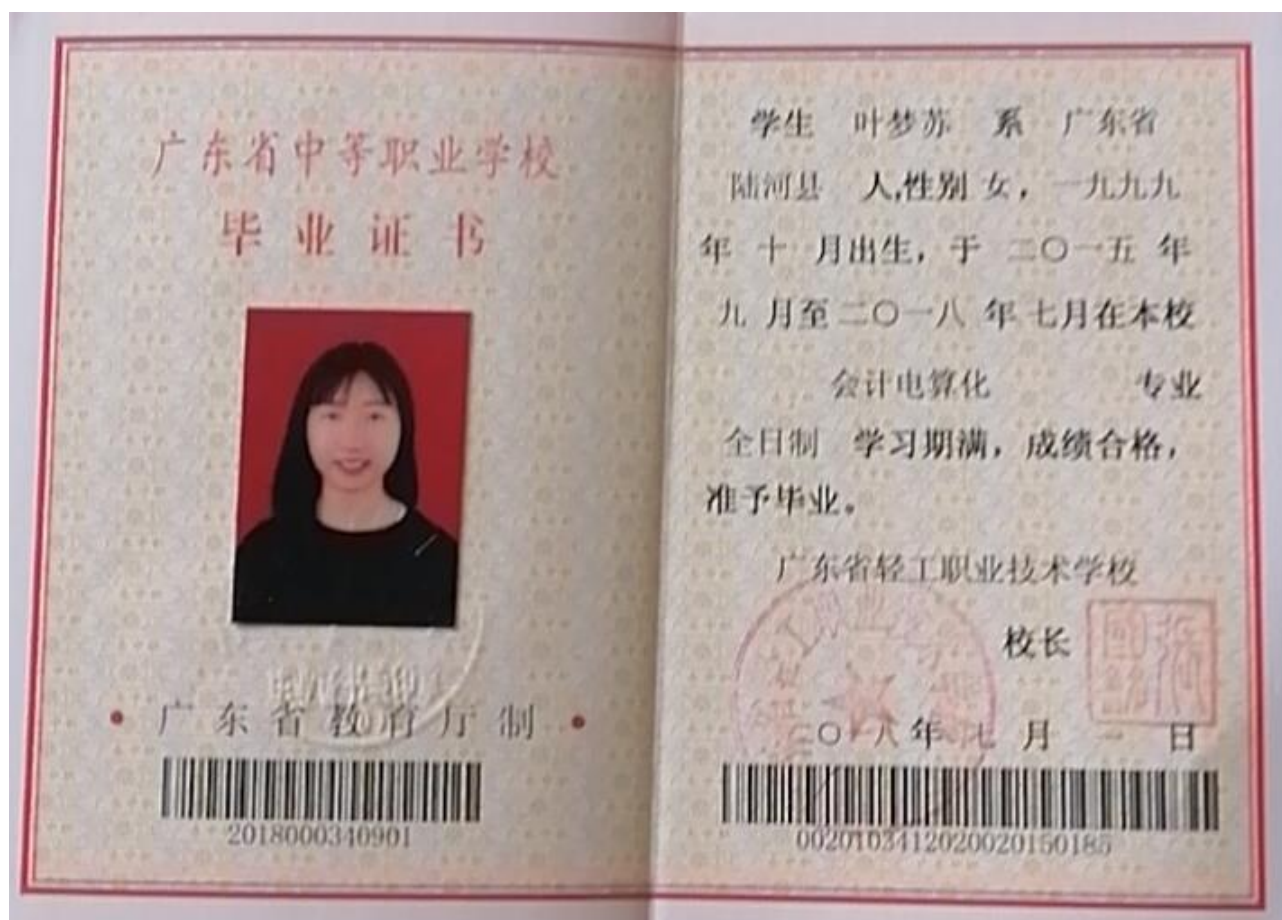 广东省中等职业学校
毕业证书
• 广东省教育厅制 •
2018000340901
学生 叶梦苏 系 广东省
陆河县 人,性别 女, 一九九九
年 十 月出生, 于 二〇一五 年
九 月至 二〇一八 年 七月在本校
会计电算化 专业
全日制 学习期满, 成绩合格,
准予毕业。
广东省轻工职业技术学校
校长
二〇一八年 七 月 一 日
0020103412020020150185